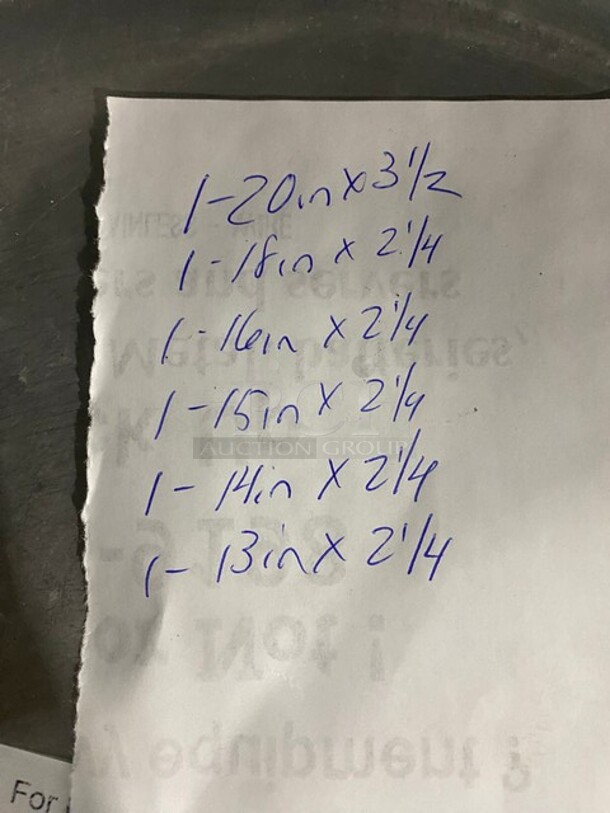 1-20in x 3 1/2
1-18in x 2 1/4
1-16in x 2 1/4
1-15in x 2 1/4
AUCTION GROUP
1-14in x 2 1/4
1-13in x 2 1/4
For